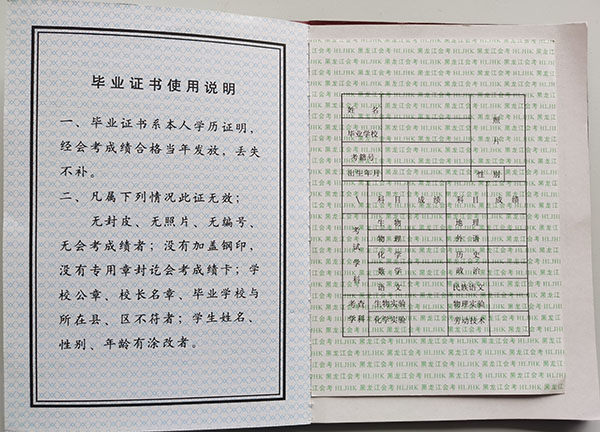 毕业证书使用说明
一、毕业证书系本人学历证明，
经会考成绩合格当年发放，丢失
不补。
二、凡属下列情况此证无效：
无封皮、无照片、无编号、
无会考成绩者；没有加盖钢印，
没有专用章封讫会考成绩卡；学
校公章、校长名章、毕业学校与
所在县、区不符者；学生姓名、
性别、年龄有涂改者。
HLJHK 黑龙江会考 HLJHK 黑龙江会考 HLJHK
姓 名
照
毕业学校
片
考籍号
出生年月 性 别
科 目 成 绩 科 目 成 绩
考试学科
生 物 地 理
物 理 外 语
化 学 历 史
数 学 政 治
语 文 民族语文
考查 生物实验 物理实验
学科 化学实验 劳动技术